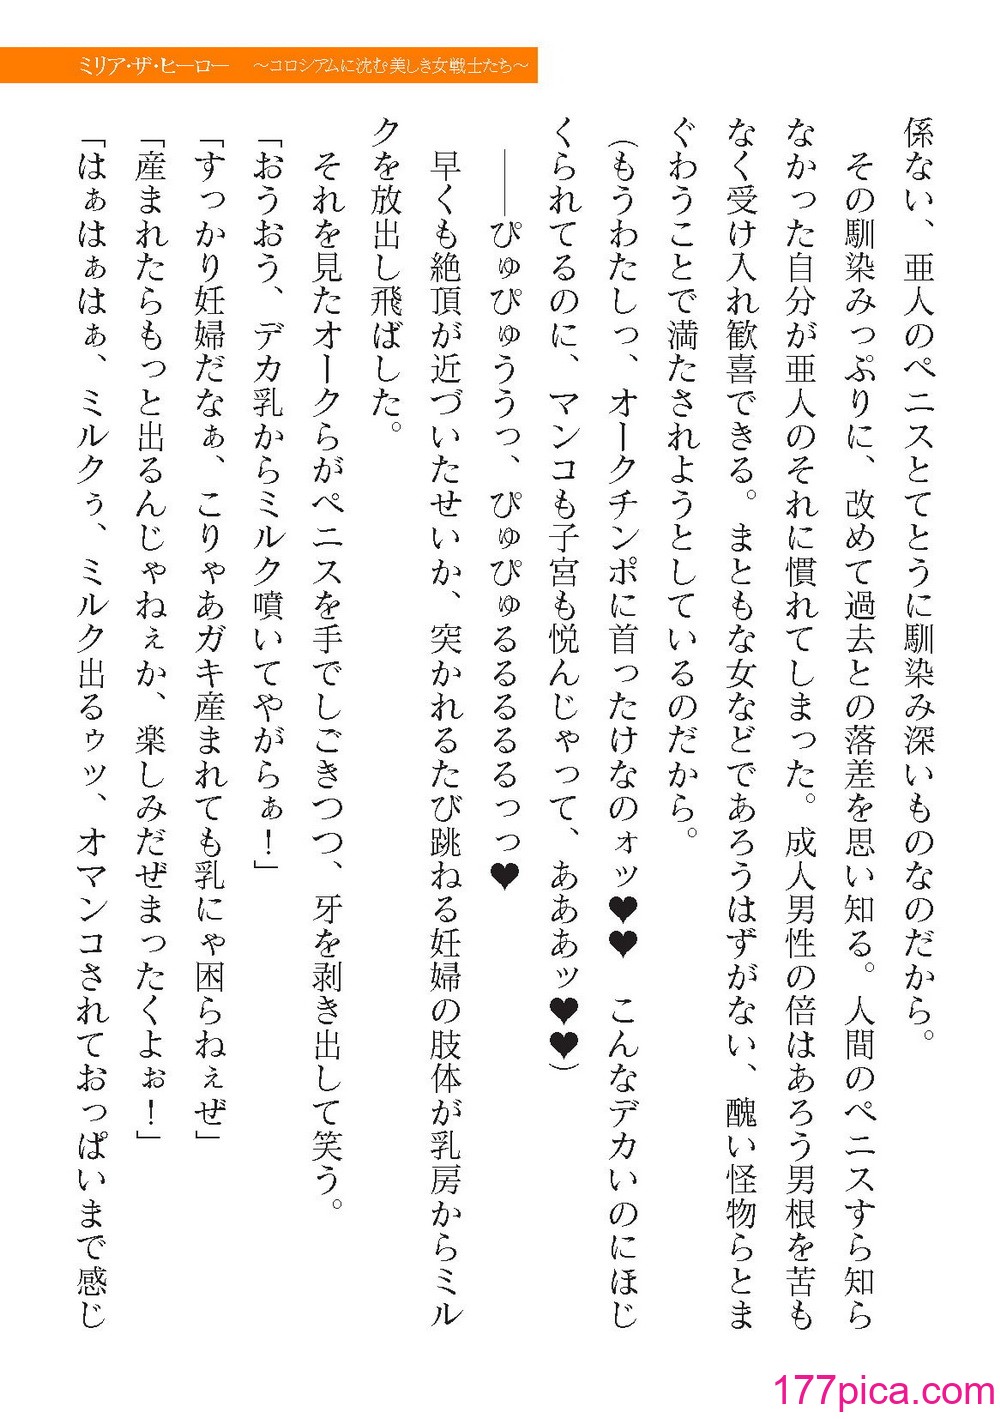 ミリア・ザ・ヒーロー　～コロシアムに沈む美しき女戦士たち～
係ない、亜人のペニスとてとうに馴染み深いものなのだから。
その馴染みっぷりに、改めて過去との落差を思い知る。人間のペニスすら知ら
なかった自分が亜人のそれに慣れてしまった。成人男性の倍はあろう男根を苦も
なく受け入れ歓喜できる。まともな女などであろうはずがない、醜い怪物らとま
ぐわうことで満たされようとしているのだから。
（もうわたしっ、オークチンポに首ったけなのォッ♥♥　こんなデカいのにほじ
くられてるのに、マンコも子宮も悦んじゃって、あああッ♥♥）
――ぴゅぴゅううっ、ぴゅぴゅるるるるるっっ♥
早くも絶頂が近づいたせいか、突かれるたび跳ねる妊婦の肢体が乳房からミル
クを放出し飛ばした。
それを見たオークらがペニスを手でしごきつつ、牙を剥き出して笑う。
「おうおう、デカ乳からミルク噴いてやがらぁ！」
「すっかり妊婦だなぁ、こりゃあガキ産まれても乳にゃ困らねぇぜ」
「産まれたらもっと出るんじゃねぇか、楽しみだぜまったくよぉ！」
「はぁはぁはぁ、ミルクぅ、ミルク出るゥッ、オマンコされておっぱいまで感じ
177pica.com